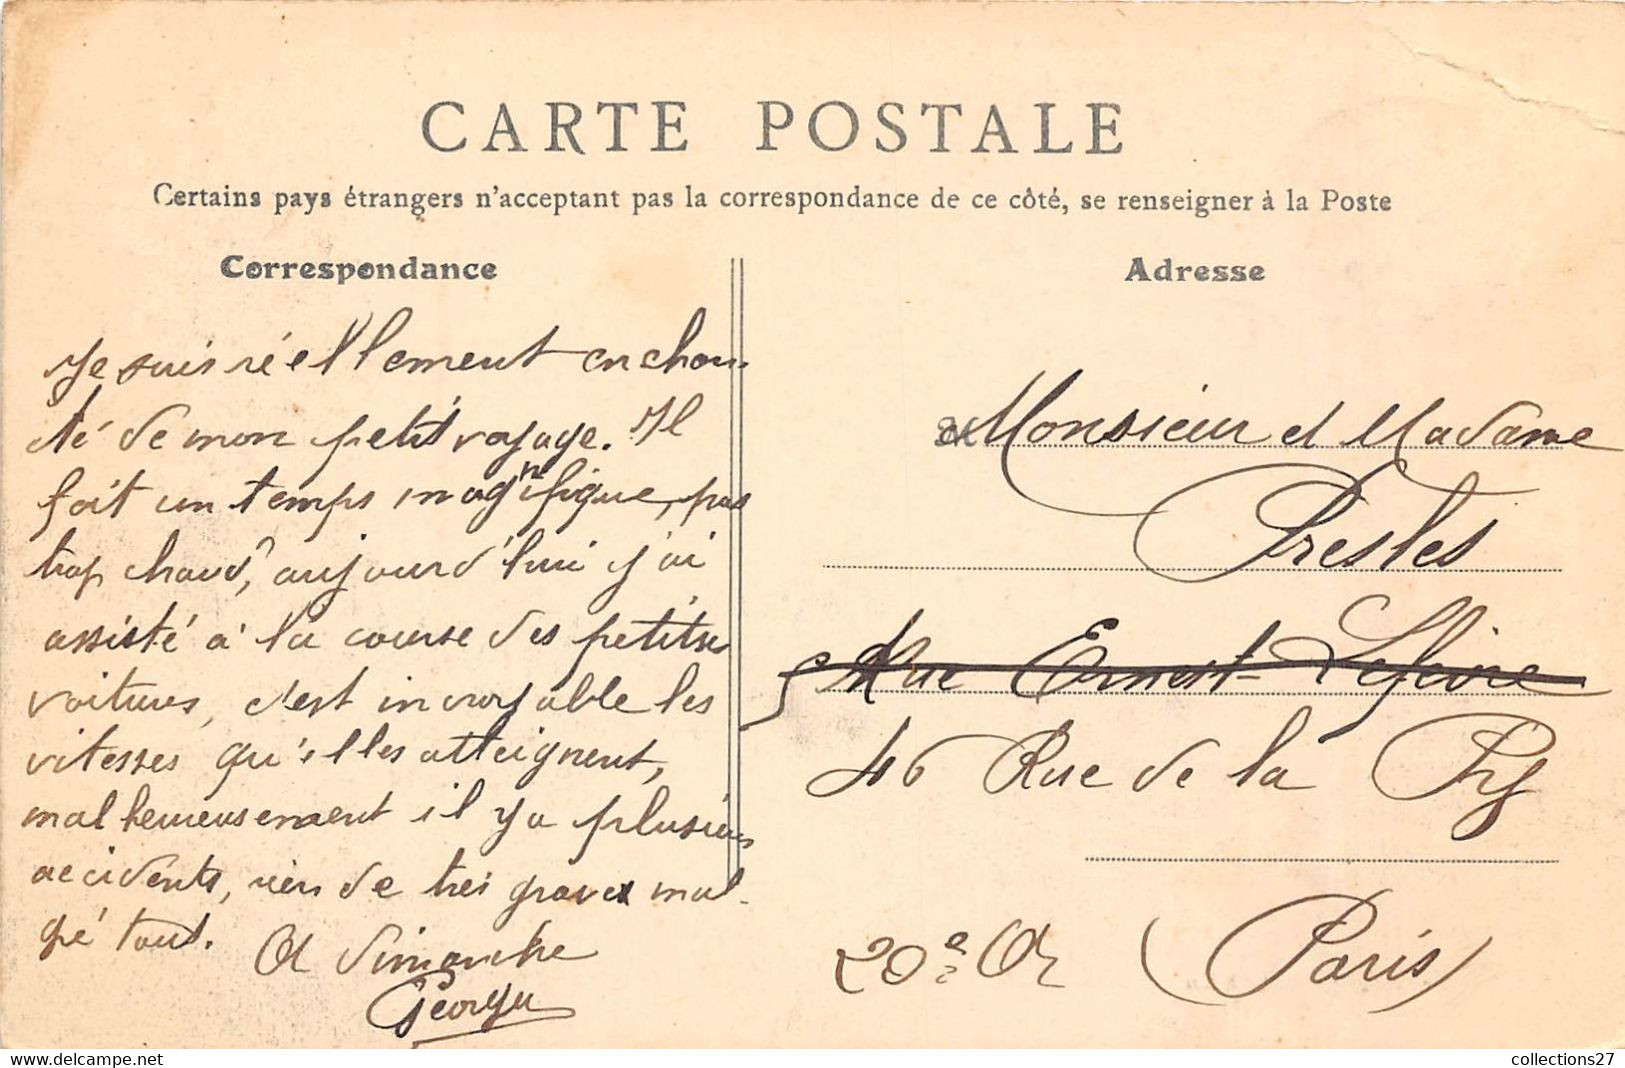 CARTE POSTALE
Certains pays étrangers n'acceptent pas la correspondance de ce côté, se renseigner à la Poste
Correspondance
Je suis réellement enchan-
té de mon petit voyage. Il
fait un temps magnifique, pas
trop chaud, aujourd'hui j'ai
assisté à la course des petites
voitures, c'est incroyable les
vitesses qu'elles atteignent,
malheureusement il y a plusieurs
accidents, rien de très grave mal-
gré tout. A dimanche
Adresse
Monsieur et Madame
Presles
Rue Ernest Lefèvre
46 Rue de la Py
20e Ar (Paris)
collections27